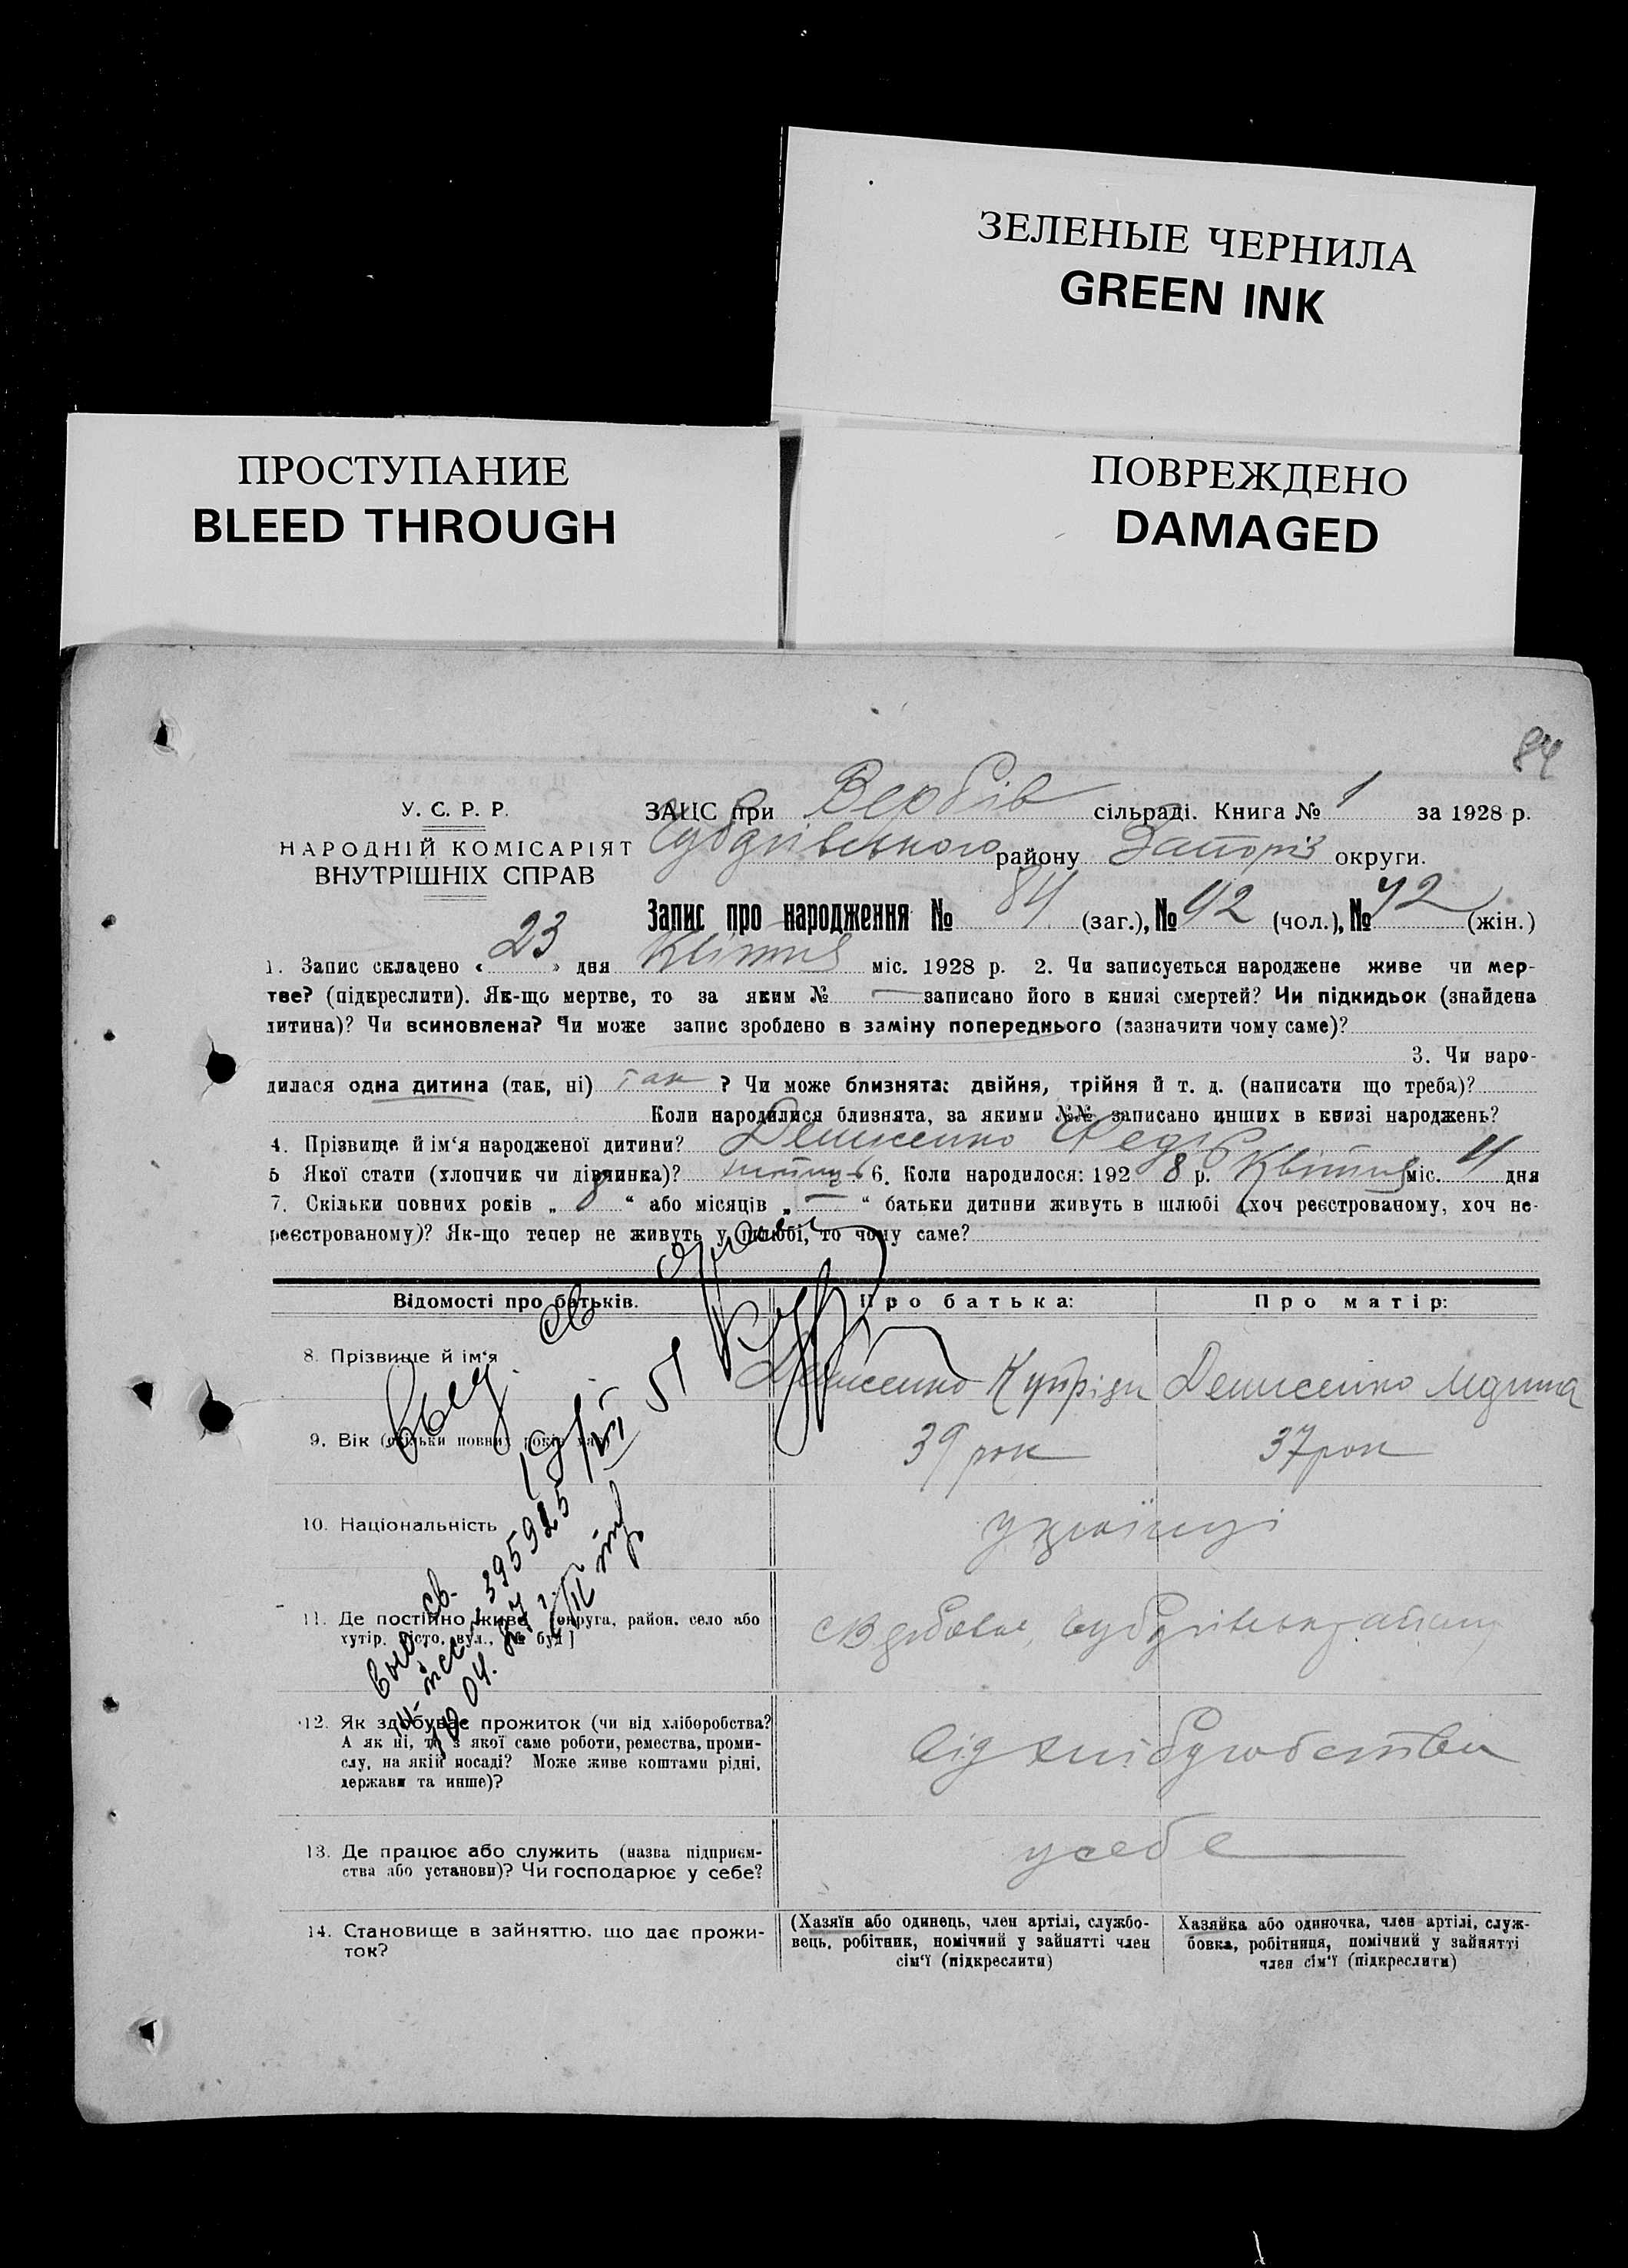 ЗЕЛЕНЫЕ ЧЕРНИЛА
GREEN INK
ПРОСТУПАНИЕ
BLEED THROUGH
ПОВРЕЖДЕНО
DAMAGED
84
У. С. Р. Р.
НАРОДНІЙ КОМІСАРІЯТ
ВНУТРІШНІХ СПРАВ
ЗАЦС при Вербів сільраді. Книга № 1 за 1928 р.
району Запоріз округи.
Запис про народження № 84 (заг.), № 42 (чол.), № 42 (жін.)
1. Запис складено « 23 » дня Квітня міс. 1928 р. 2. Чи записується народжене живе чи мер-
тве? (підкреслити). Як-що мертве, то за яким № — записано його в книзі смертей? Чи підкидьок (знайдена
дитина)? Чи всиновлена? Чи може запис зроблено в заміну попереднього (зазначити чому саме)?
3. Чи наро-
дилася одна дитина (так, ні) так ? Чи може близнята: двійня, трійня й т. д. (написати що треба)?
Коли народилися близнята, за якими №№ записано инших в книзі народжень?
4. Прізвище й ім‘я народженої дитини? Денисенко
5 Якої стати (хлопчик чи дівчинка)? 6. Коли народилося: 192 8 р. Квітня міс. 11 дня
7. Скільки повних років „ “ або місяців „ — “ батьки дитини живуть в шлюбі (хоч реєстрованому, хоч не-
реєстрованому)? Як-що тепер не живуть у шлюбі, то чому саме?
Відомості про батьків.
Про батька:
Про матір:
8. Прізвище й ім‘я
Денисенко
Денисенко
9. Вік (скільки повних років має)
39 рок
37 рок
10. Національність
українці
11. Де постійно живе (округа, район, село або
хутір, місто, вул., № буд.)
12. Як здобуває прожиток (чи від хліборобства?
А як ні, то з якої саме роботи, ремества, проми-
слу, на якій посаді? Може живе коштами рідні,
держави та инше)?
від хліборобства
13. Де працює або служить (назва підприєм-
ства або установи)? Чи господарює у себе?
у себе
14. Становище в зайняттю, що дає прожи-
ток?
(Хазяїн або одинець, член артілі, службо-
вець, робітник, помічний у зайнятті член
сім‘ї (підкреслити)
Хазяйка або одиночка, член артілі, служ-
бовка, робітниця, помічний у зайнятті
член сім‘ї (підкреслити)
395925